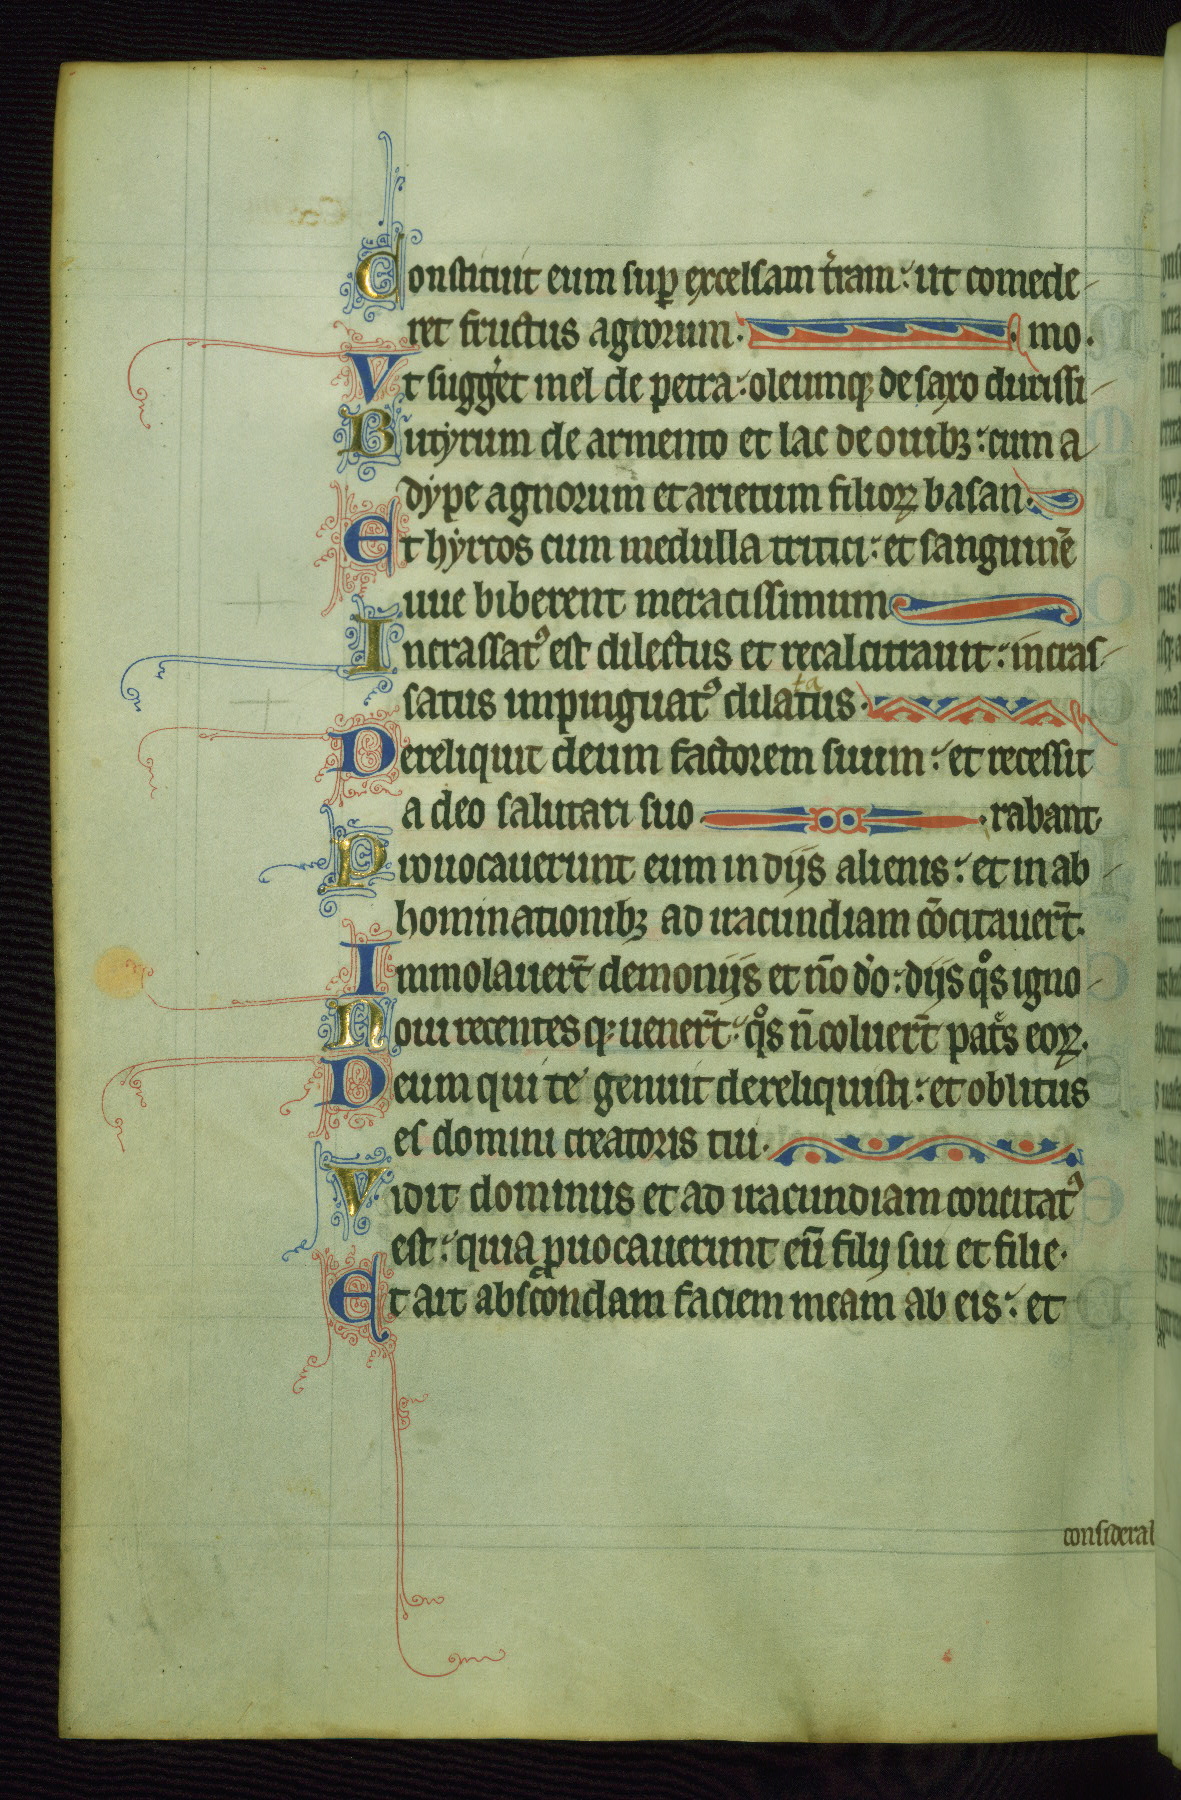 Constituit eum sup̱ excelsam t̉ram : ut comede-
ret fructus agrorum · mo ·
Vt sugg̉et mel de petra : oleumq; de saxo durissi-
Butyrum de armento et lac de ouibꝫ : cum a
dype agnorum et arietum filioꝝ basan ·
Et hyrcos cum medulla tritici : et sanguinē
uue biberent meracissimum
Incrassatꝰ est dilectus et recalcitrauit : incras-
satus impinguatꝰ dilatus ·
ta
Dereliquit deum factorem suum : et recessit
a deo salutari suo · rabant ·
Prouocauerunt eum in dijs alienis : et in ab-
hominationibꝫ ad iracundiam cōcitauer̄t ·
Immolauer̄t demonijs et nō dō : dijs qͦs igno-
Noui recentesq; uener̄t : qͦs n̄ coluer̄t pat̉s eoꝝ ·
Deum qui te genuit dereliquisti : et oblitus
es domini creatoris tui ·
Vidit dominus et ad iracundiam concitatꝰ
est : quia ꝓuocauerunt eū filij sui et filie ·
Et ait abscondam faciem meam ab eis : et
considerab